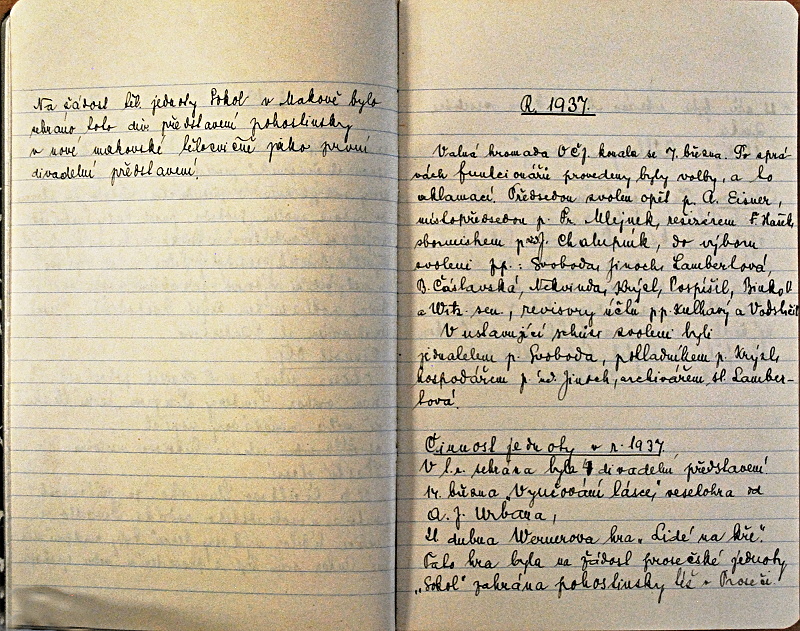 Na žádost těl. jednoty Sokol v Makově bylo
sehráno toto div. představení pohostinsky
v nové makovské tělocvičně jako první
divadelní představení.
R. 1937.
Valná hromada OČJ. konala se 7. března. Po sprá-
vách funkcionářů provedeny byly volby, a to
aklamací. Předsedou zvolen opět p. A. Eisner,
místopředsedou p. Fr. Mlejnek, režisérem F. Hašek
sbormistrem p. J. Chalupník, do výboru
zvoleni pp.: Svoboda, Jinoch, Lambertová,
B. Čáslavská, Nekvinda, Krýsl, Pospíšil,
a Witz sen., revisory účtů pp. Kulhavý a Vodstrčil
V ustavující schůzi zvoleni byli
jednatelem p. Svoboda, pokladníkem p. Krýsl,
hospodářem p. Jinoch, archivářem sl. Lamber-
tová.
Činnost jednoty v r. 1937.
V t. r. sehrána byla 4 divadelní představení
14. března „Vyučování lásce", veselohra od
A. J. Urbana,
dubna Wernerova hra „Lidé na kře".
Tato hra byla na žádost prosečské jednoty
„Sokol" zahrána pohostinsky též v Proseči.